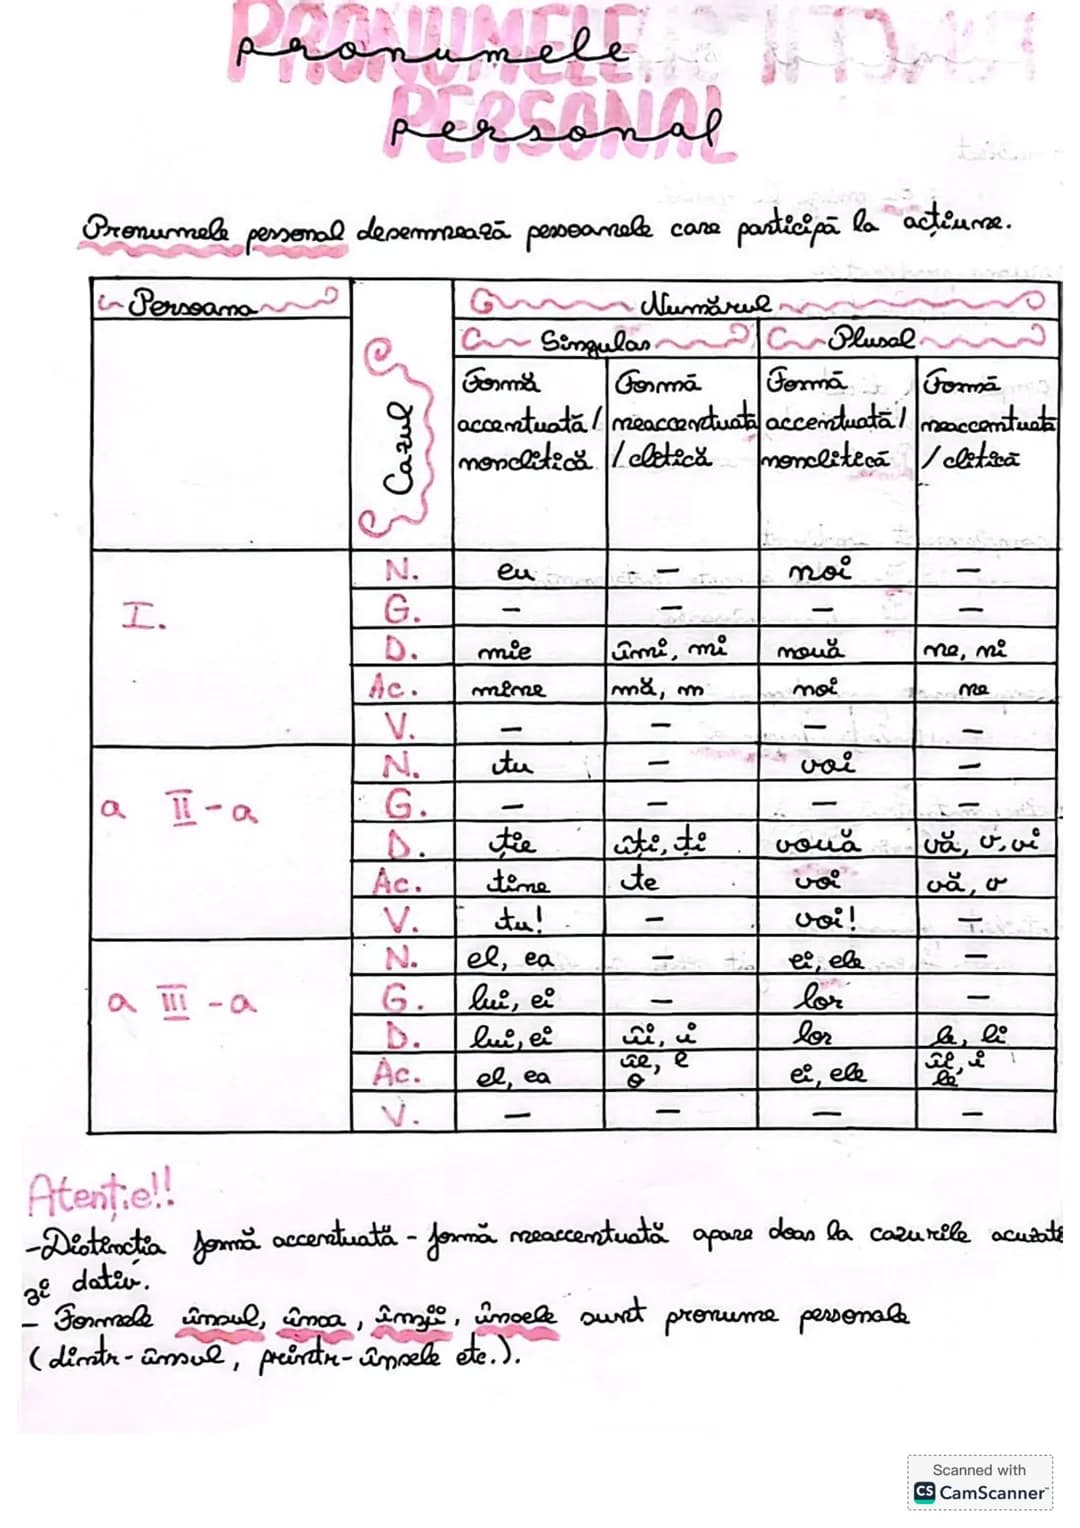 pronumele
personal
Pronumele personal desemnează persoanele care participă la acțiune.
Persoana
Cazul
Numărul
Singular Plural
Formă accentuată / nonclitică Formă neaccentuată / clitică Formă accentuată / nonclitică Formă neaccentuată / clitică
I.
N. eu - noi -
G. - - - -
D. mie îmi, mi nouă ne, ni
Ac. mine mă, m noi ne
V. - - - -
a II-a
N. tu - voi -
G. - - - -
D. ție îți, ți vouă vă, v, vi
Ac. tine te voi vă, v
V. tu! - voi! -
a III-a
N. el, ea - ei, ele -
G. lui, ei - lor -
D. lui, ei îi, i lor le, li
Ac. el, ea îl, l o ei, ele îi, i le
V. - - - -
Atenție!!
- Distincția formă accentuată - formă neaccentuată apare doar la cazurile acuzativ
și dativ.
- Formele însul, însa, înșii, însele sunt pronume personale
(dintr-însul, printr-însele etc.).
Scanned with
CS CamScanner